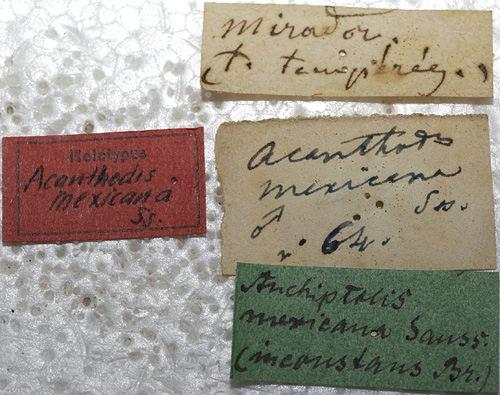 Mirador.
(t. tempérée.)
Holotypus
Acanthodis
mexicana
Ss.
Acanthodis
mexicana
Ss.
♂
64.
Anchiptolis
mexicana Sauss.
(inconstans Br.)